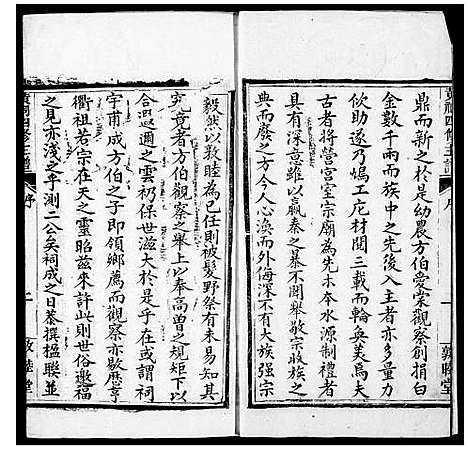 鼎而新之於是幼農方伯愛棠觀察創捐白
金數千兩而族中之先後入主者亦多量力
佽助遂乃鳩工庀材閱三載而輪奐美焉夫
古者將營宮室宗廟為先木本水源制禮者
具有深意雖以嬴秦之暴不聞舉敬宗收族之
典而廢之方今人心渙而外侮深不有大族强宗
敦睦堂
毅然以敦睦為己任則被髮野祭有未易知其
究竟者方伯觀察之舉上以奉高曽之規矩下以
合遐邇之雲礽保世滋大於是乎在或謂祠
宇甫成方伯之子即領鄉薦而觀察亦歇歷亨
衢祖若宗在天之靈昭茲來許此則世俗邀福
之見亦淺之乎測二公矣祠成之日恭撰楹聯並
黃祠四修主譜
序
二
敦睦堂